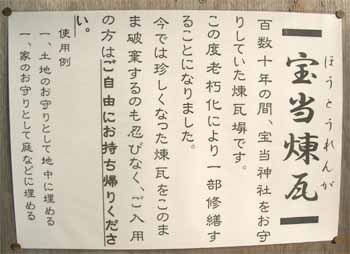 ほうとうれんが
宝当煉瓦
百数十年の間、宝当神社をお守
りしていた煉瓦塀です。
この度老朽化により一部修繕す
ることになりました。
今では珍しくなった煉瓦をこのま
ま破棄するのも忍びなく、ご入用
の方はご自由にお持ち帰りくださ
い。
使用例
一、土地のお守りとして地中に埋める
一、家のお守りとして庭などに埋める